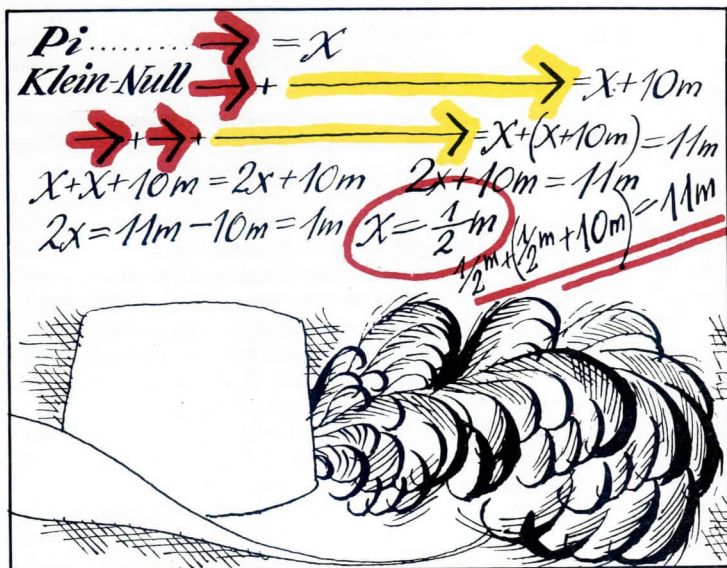 Pi.......... → = x
Klein-Null → + → = x + 10m
→ + → + → = x + (x + 10m) = 11m
x + x + 10m = 2x + 10m 2x + 10m = 11m
2x = 11m − 10m = 1m x = 1/2 m
1/2 m + (1/2 m + 10m) = 11m